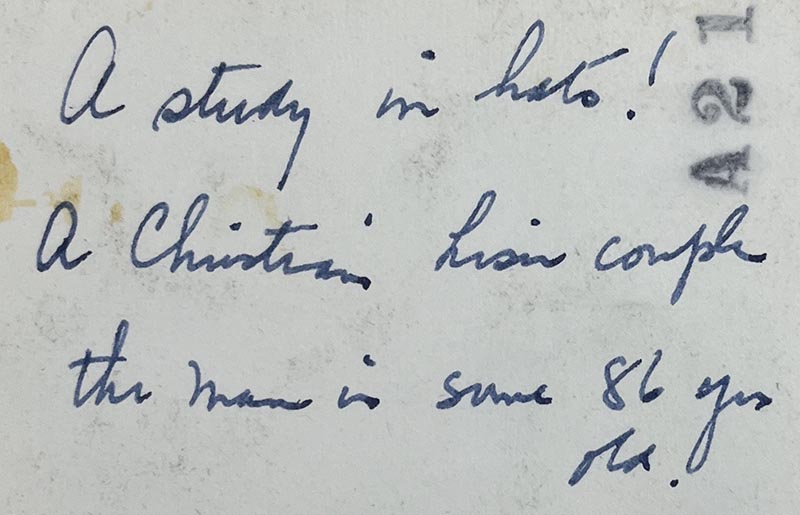 A study in hats!
A Christian Lisu couple
the man is some 86 yrs
old.
A21